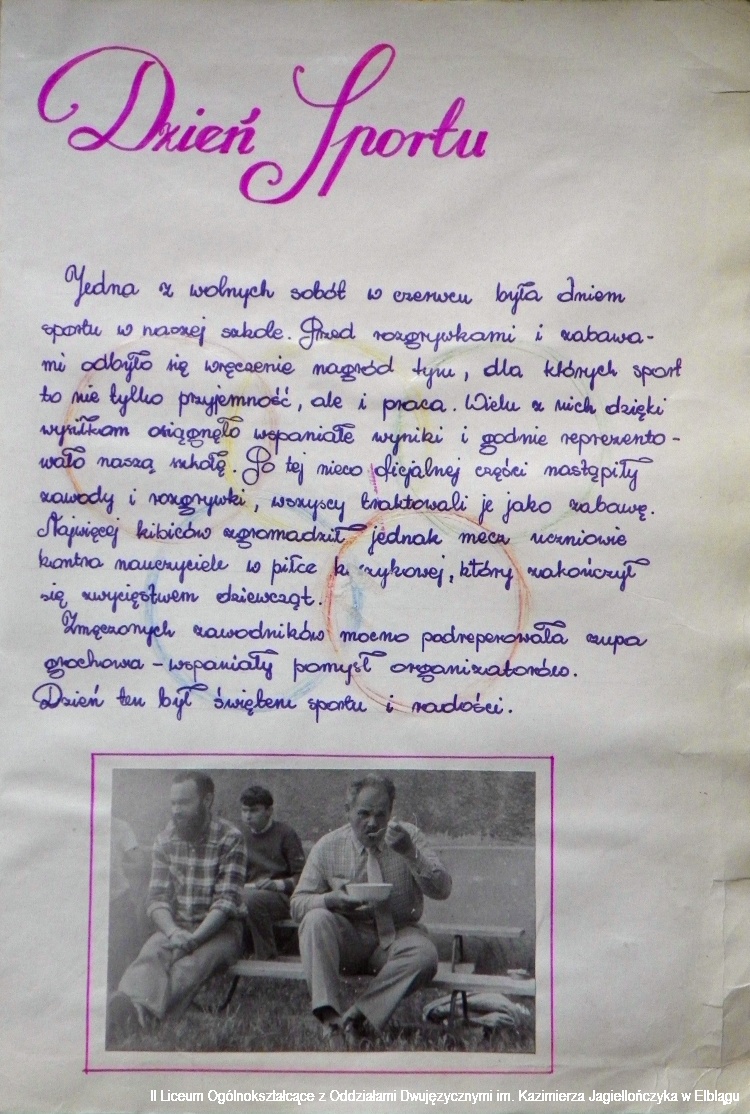 Dzień Sportu
Jedna z wolnych sobót w czerwcu była dniem
sportu w naszej szkole. Przed rozgrywkami i zabawa-
mi odbyło się wręczenie nagród tym, dla których sport
to nie tylko przyjemność, ale i praca. Wielu z nich dzięki
wysiłkom osiągnęło wspaniałe wyniki i godnie reprezento-
wało naszą szkołę. Po tej nieco oficjalnej części nastąpiły
zawody i rozgrywki, wszyscy traktowali je jako zabawę.
Najwięcej kibiców zgromadził jednak mecz uczniowie
kontra nauczyciele w piłce k zykowej, który zakończył
się zwycięstwem dziewcząt.
Zmęczonych zawodników mocno podreperowała zupa
grochowa - wspaniały pomysł organizatorów.
Dzień ten był świętem sportu i radości.
II Liceum Ogólnokształcące z Oddziałami Dwujęzycznymi im. Kazimierza Jagiellończyka w Elblągu